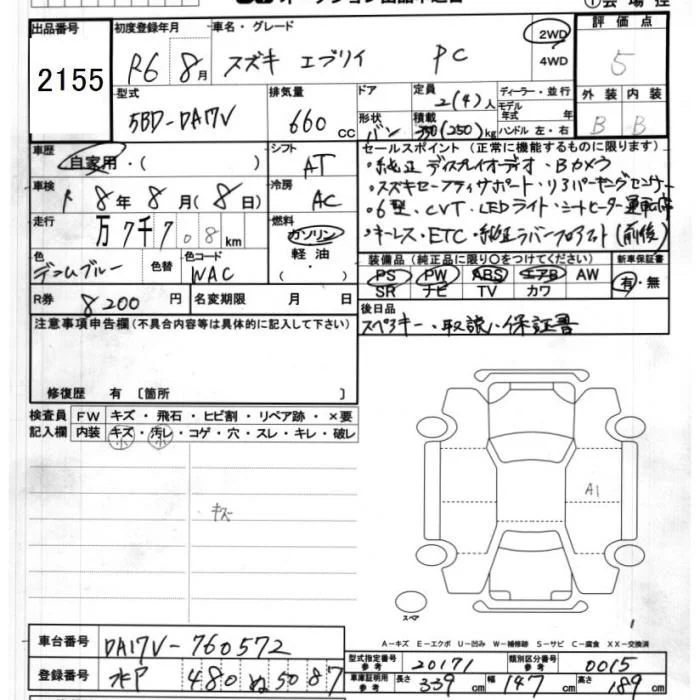 出品番号 初度登録年月 車名・グレード 評価点
2155 R6 8月 スズキ エブリイ PC 2WD 4WD 5
型式 排気量 ドア 定員 ディーラー・並行 外装 内装
5BD-DA17V 660cc 形状 バン 2(4)人 積載 350(250)kg モデル年式 年 ハンドル 左・右 B B
車歴 自家用・( ) シフト AT セールスポイント(正常に機能するものに限ります)
・純正ディスプレイオーディオ・Bカメラ
車検 R 8年 8月(8日) 冷房 AC ・スズキセーフティサポート・リヤパーキングセンサー
走行 万7千708km 燃料 ガソリン 軽油 ・( ) ・6型・CVT・LEDライト・シートヒーター運転席
・キーレス・ETC・純正ラバーフロアマット(前後)
色 デニムブルー 色替 色コード WAC 装備品(純正品に限り○をつけてください) 新車保証書
PS PW ABS エアB AW 有・無
R券 8200円 名変期限 月 日 SR ナビ TV カワ
注意事項申告欄(不具合内容等は具体的に記入して下さい) 後日品
スペアキー・取説・保証書
修復歴 有〔箇所 〕
検査員 FW キズ・飛石・ヒビ割・リペア跡・×要
記入欄 内装 キズ・汚レ・コゲ・穴・スレ・キレ・破レ
キズ
A1
スペア
A−キズ E−エクボ U−凹み W−補修跡 S−サビ C−腐食 XX−交換済
車台番号 DA17V-760572
型式指定番号 参考 20171 類別区分番号 参考 0015
登録番号 水戸 480 ぬ 5087
車庫証明用 参考 長さ 339cm 幅 147cm 高さ 189cm